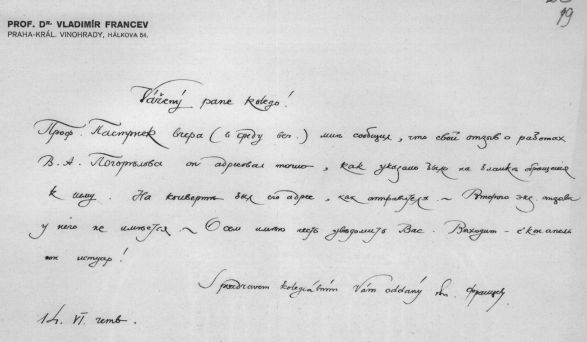 19
PROF. DR. VLADIMÍR FRANCEV
PRAHA-KRÁL. VINOHRADY, HÁLKOVA 54.
Vážený pane kolego!
Проф. Пастрнек вчера (в среду веч.) мнѣ сообщил, что свой отзыв о работах
В. А. Погорѣлова он адресовал точно, как указано было на бланкѣ обращения
к нему. На конвертѣ был его адрес, как отправителя. ~ Второго экз. отзыва
у него не имѣется. ~ О сем имѣю честь уведомить Вас. Выходит -
ок истуар!
S pozdravem kolegiálním Vám oddaný Вл. Францев.
14. VI. четв.